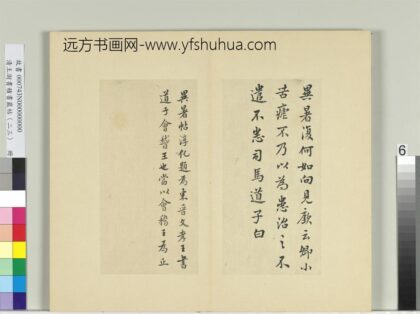 远方书画网-www.yfshuhua.com
異暑復何如向見慶云卿小
苦瘧不乃以為患治之不
遣不悉司馬道子白
異暑帖淳化題為東晉文孝王書
道子會稽王也當以會稽王為正
故書 00074300000000
6